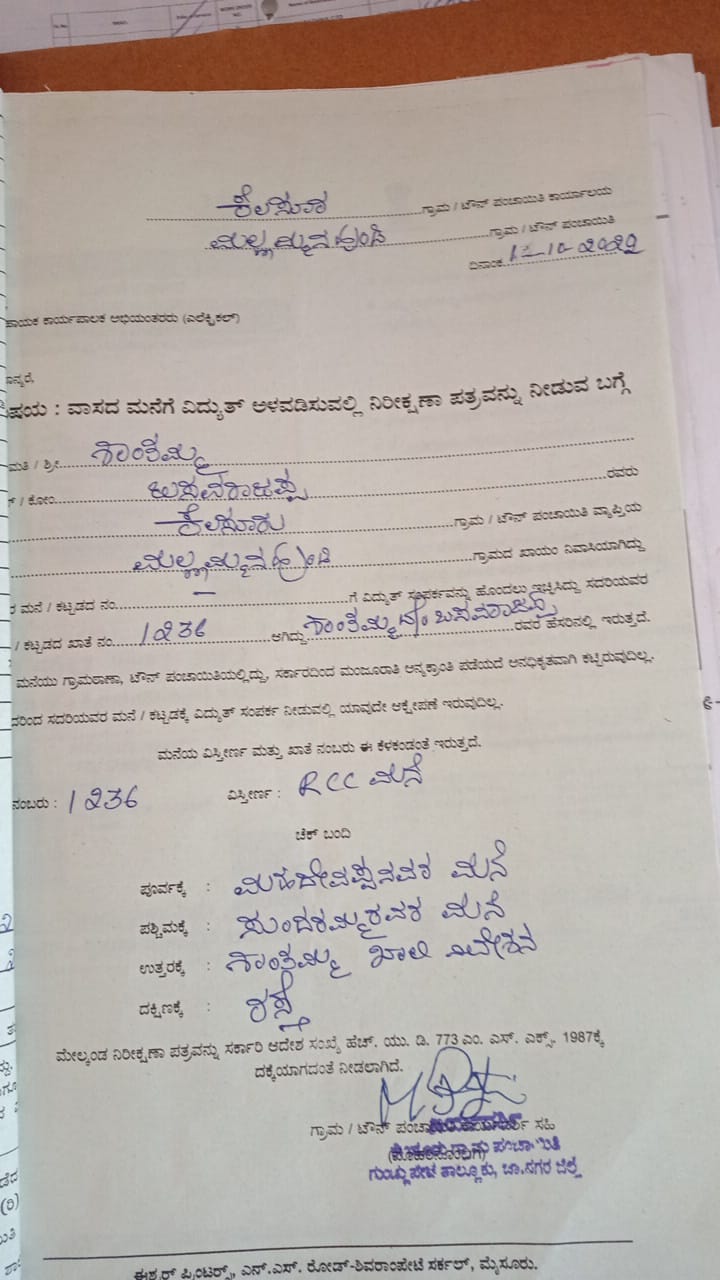 ಕೆಲಸೂರು ಗ್ರಾಮ / ಟೌನ್ ಪಂಚಾಯಿತಿ ಕಾರ್ಯಾಲಯ
ಮಲ್ಲಮ್ಮನಹುಂಡಿ ಗ್ರಾಮ / ಟೌನ್ ಪಂಚಾಯಿತಿ
ದಿನಾಂಕ 12-10-2022
ಹಾಯಕ ಕಾರ್ಯಪಾಲಕ ಅಭಿಯಂತರರು (ಎಲೆಕ್ಟ್ರಿಕಲ್)
ನ್ಯರೆ,
ಷಯ : ವಾಸದ ಮನೆಗೆ ವಿದ್ಯುತ್ ಅಳವಡಿಸುವಲ್ಲಿ ನಿರೀಕ್ಷಣಾ ಪತ್ರವನ್ನು ನೀಡುವ ಬಗ್ಗೆ
ಮತಿ / ಶ್ರೀ ಶಾಂತಮ್ಮ
/ ಕೋಂ ಬಸವರಾಜಪ್ಪ ರವರು
ಕೆಲಸೂರು ಗ್ರಾಮ / ಟೌನ್ ಪಂಚಾಯಿತಿ ವ್ಯಾಪ್ತಿಯ
ಮಲ್ಲಮ್ಮನಹುಂಡಿ ಗ್ರಾಮದ ಖಾಯಂ ನಿವಾಸಿಯಾಗಿದ್ದು
ರ ಮನೆ / ಕಟ್ಟಡದ ನಂ. — ಗೆ ವಿದ್ಯುತ್ ಸಂಪರ್ಕವನ್ನು ಹೊಂದಲು ಇಚ್ಛಿಸಿದ್ದು ಸದರಿಯವರ
/ ಕಟ್ಟಡದ ಖಾತೆ ನಂ. 1236 ಆಗಿದ್ದು ಶಾಂತಮ್ಮ ಕೋಂ ಬಸವರಾಜಪ್ಪ ರವರ ಹೆಸರಿನಲ್ಲಿ ಇರುತ್ತದೆ.
ಮನೆಯು ಗ್ರಾಮಠಾಣಾ, ಟೌನ್ ಪಂಚಾಯಿತಿಯಲ್ಲಿದ್ದು, ಸರ್ಕಾರದಿಂದ ಮಂಜೂರಾತಿ ಅನ್ಯಕ್ರಾಂತಿ ಪಡೆಯದೆ ಅನಧಿಕೃತವಾಗಿ ಕಟ್ಟಿರುವುದಿಲ್ಲ.
ದರಿಂದ ಸದರಿಯವರ ಮನೆ / ಕಟ್ಟಡಕ್ಕೆ ವಿದ್ಯುತ್ ಸಂಪರ್ಕ ನೀಡುವಲ್ಲಿ ಯಾವುದೇ ಆಕ್ಷೇಪಣೆ ಇರುವುದಿಲ್ಲ.
ಮನೆಯ ವಿಸ್ತೀರ್ಣ ಮತ್ತು ಖಾತೆ ನಂಬರು ಈ ಕೆಳಕಂಡಂತೆ ಇರುತ್ತದೆ.
ನಂಬರು : 1236 ವಿಸ್ತೀರ್ಣ : RCC ಮನೆ
ಚೆಕ್ ಬಂದಿ
ಪೂರ್ವಕ್ಕೆ : ಮಹದೇವಪ್ಪನವರ ಮನೆ
ಪಶ್ಚಿಮಕ್ಕೆ : ಸುಂದರಮ್ಮರವರ ಮನೆ
ಉತ್ತರಕ್ಕೆ : ಶಾಂತಮ್ಮ ಖಾಲಿ ನಿವೇಶನ
ದಕ್ಷಿಣಕ್ಕೆ : ರಸ್ತೆ
ಮೇಲ್ಕಂಡ ನಿರೀಕ್ಷಣಾ ಪತ್ರವನ್ನು ಸರ್ಕಾರಿ ಆದೇಶ ಸಂಖ್ಯೆ ಹೆಚ್. ಯು. ಡಿ. 773 ಎಂ. ಎಸ್. ಎಕ್ಸ್. 1987ಕ್ಕೆ
ದಕ್ಕೆಯಾಗದಂತೆ ನೀಡಲಾಗಿದೆ.
ಗ್ರಾಮ / ಟೌನ್ ಪಂಚಾಯಿತಿ ಸಹಿ
ಗ್ರಾಮ ಪಂಚಾಯಿತಿ
ಗುಂಡ್ಲುಪೇಟೆ ತಾಲ್ಲೂಕು, ಚಾ.ನಗರ ಜಿಲ್ಲೆ
ಈಶ್ವರ್ ಪ್ರಿಂಟರ್ಸ್, ಎನ್.ಎಸ್. ರೋಡ್-ಶಿವರಾಂಪೇಟೆ ಸರ್ಕಲ್, ಮೈಸೂರು.